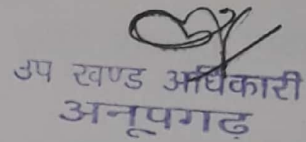 उप खण्ड अधिकारी
अनूपगढ़